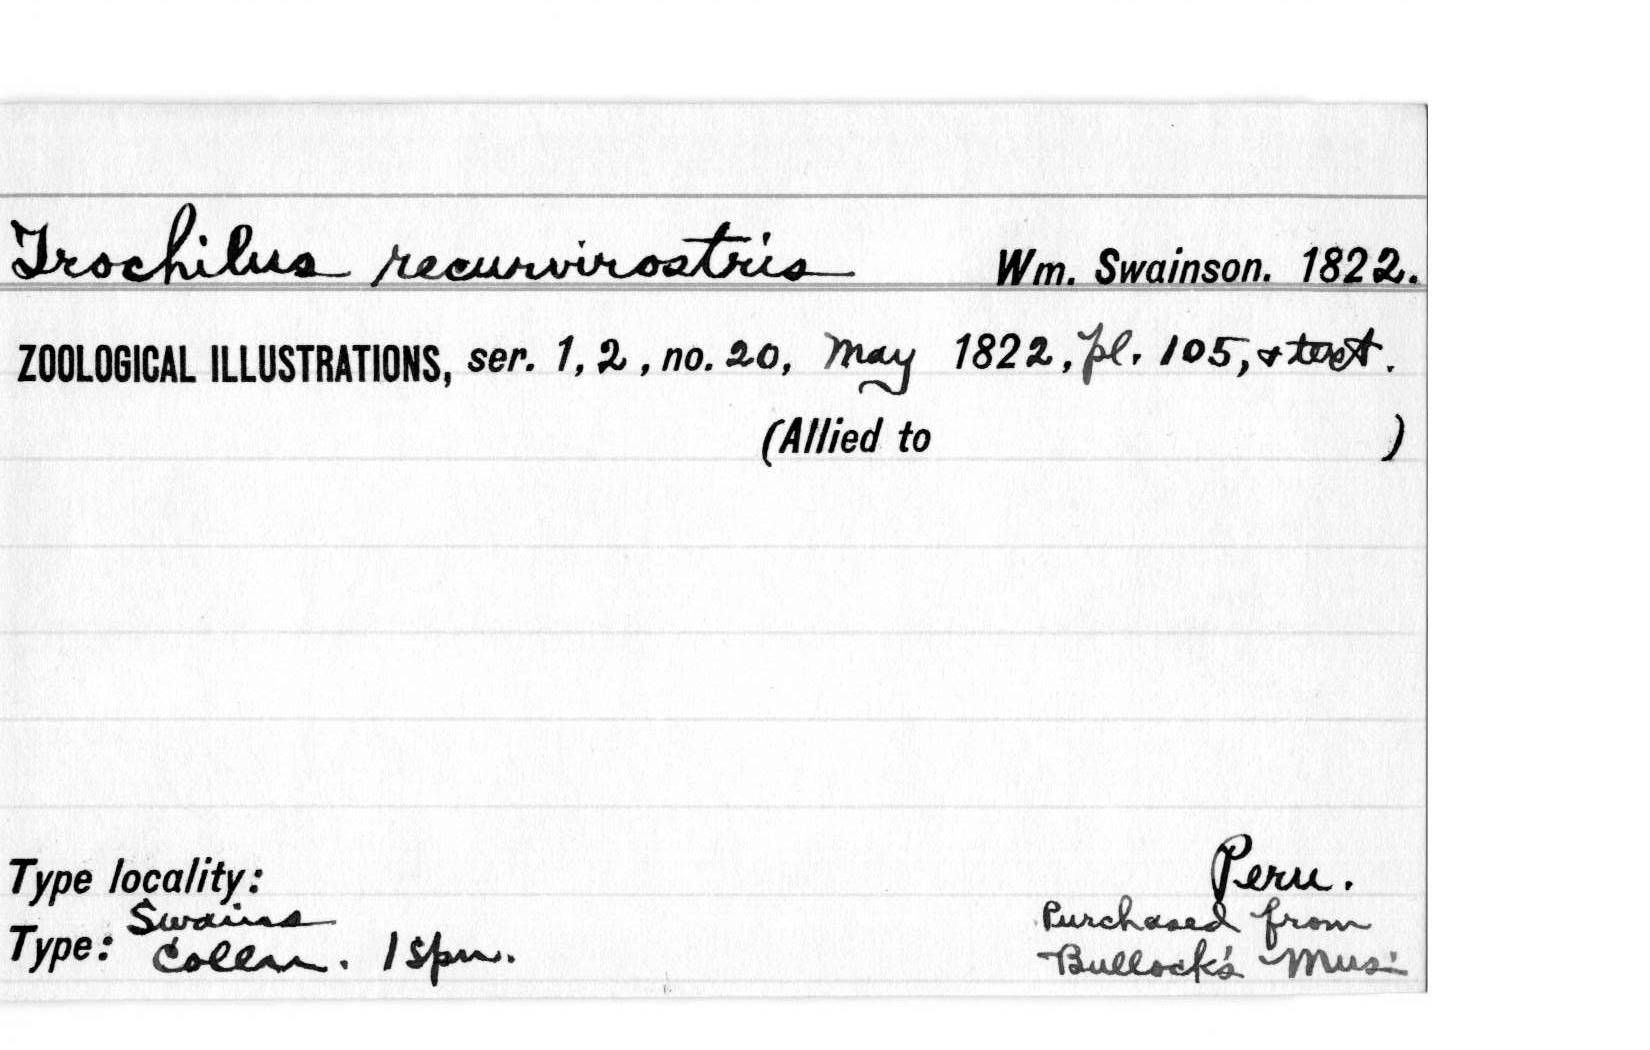 Trochilus recurvirostris Wm. Swainson. 1822.
ZOOLOGICAL ILLUSTRATIONS, ser. 1, 2, no. 20, May 1822, pl. 105, & text.
(Allied to )
Type locality: Peru.
Swains Purchased from
Type: Colln. 1 spn. Bullock's Mus.